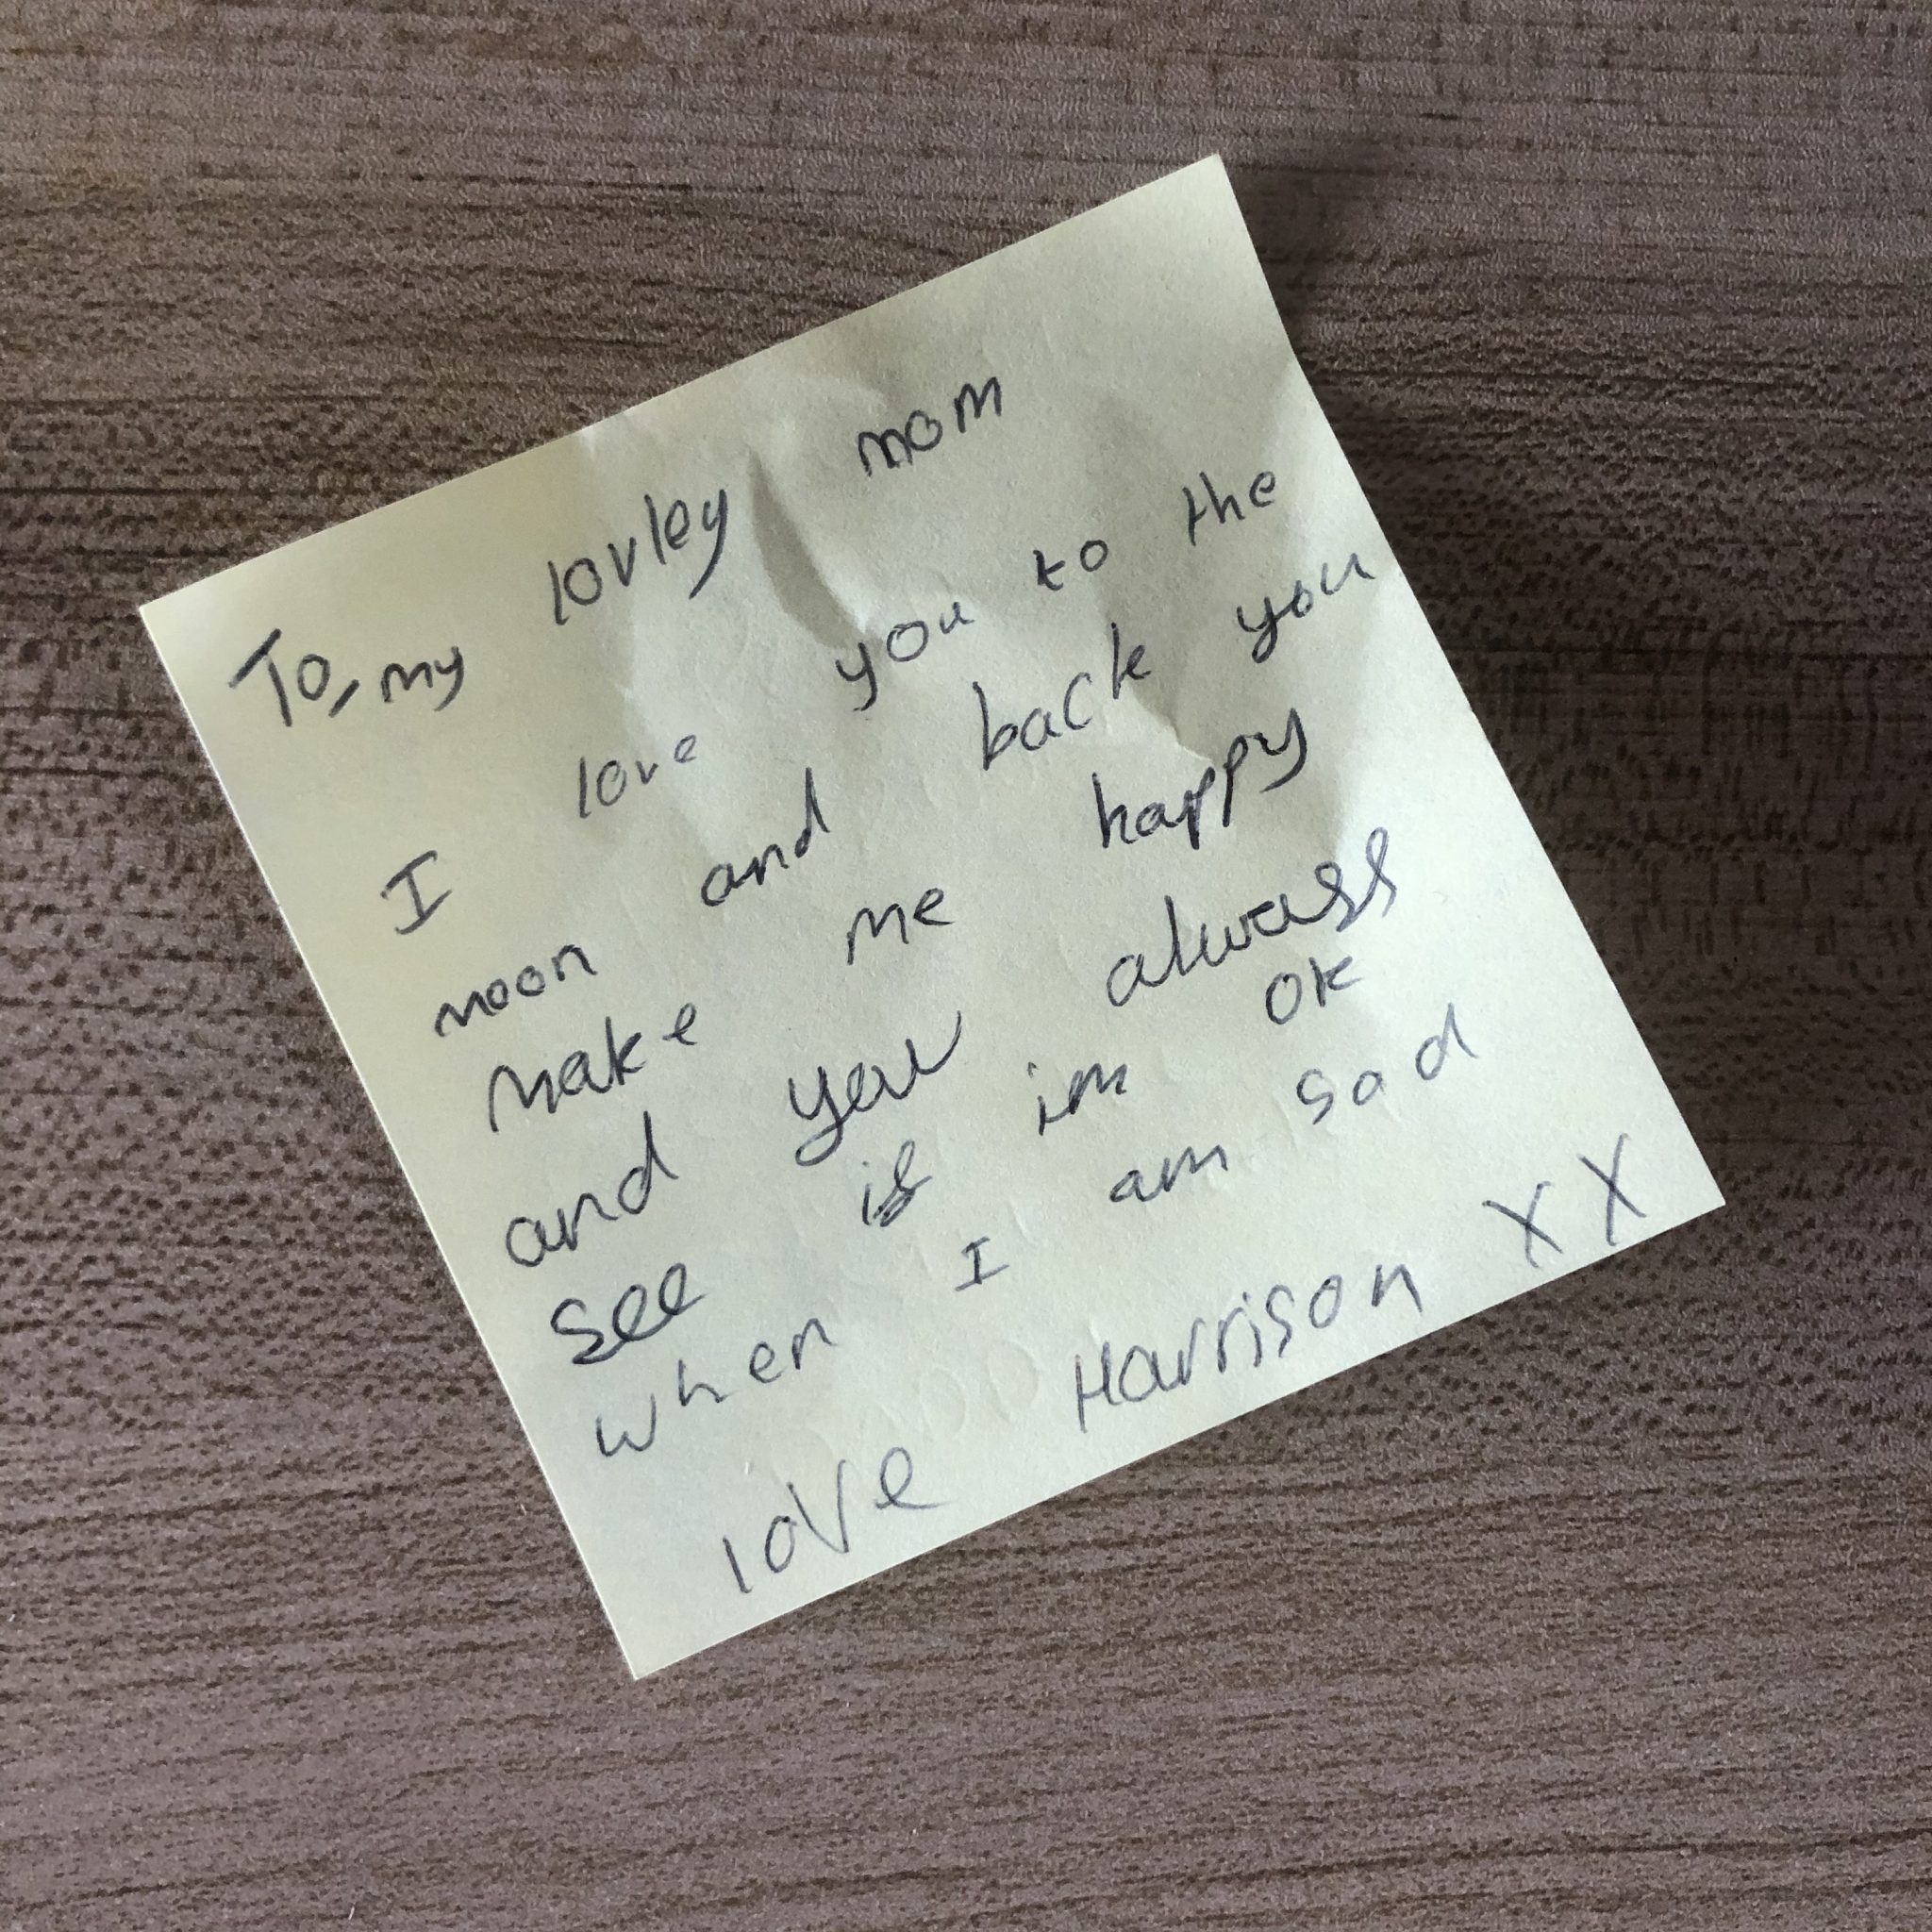 To, my lovley mom
I love you to the
moon and back you
make me happy
and you always
see if im ok
when I am sad
love Harrison XX